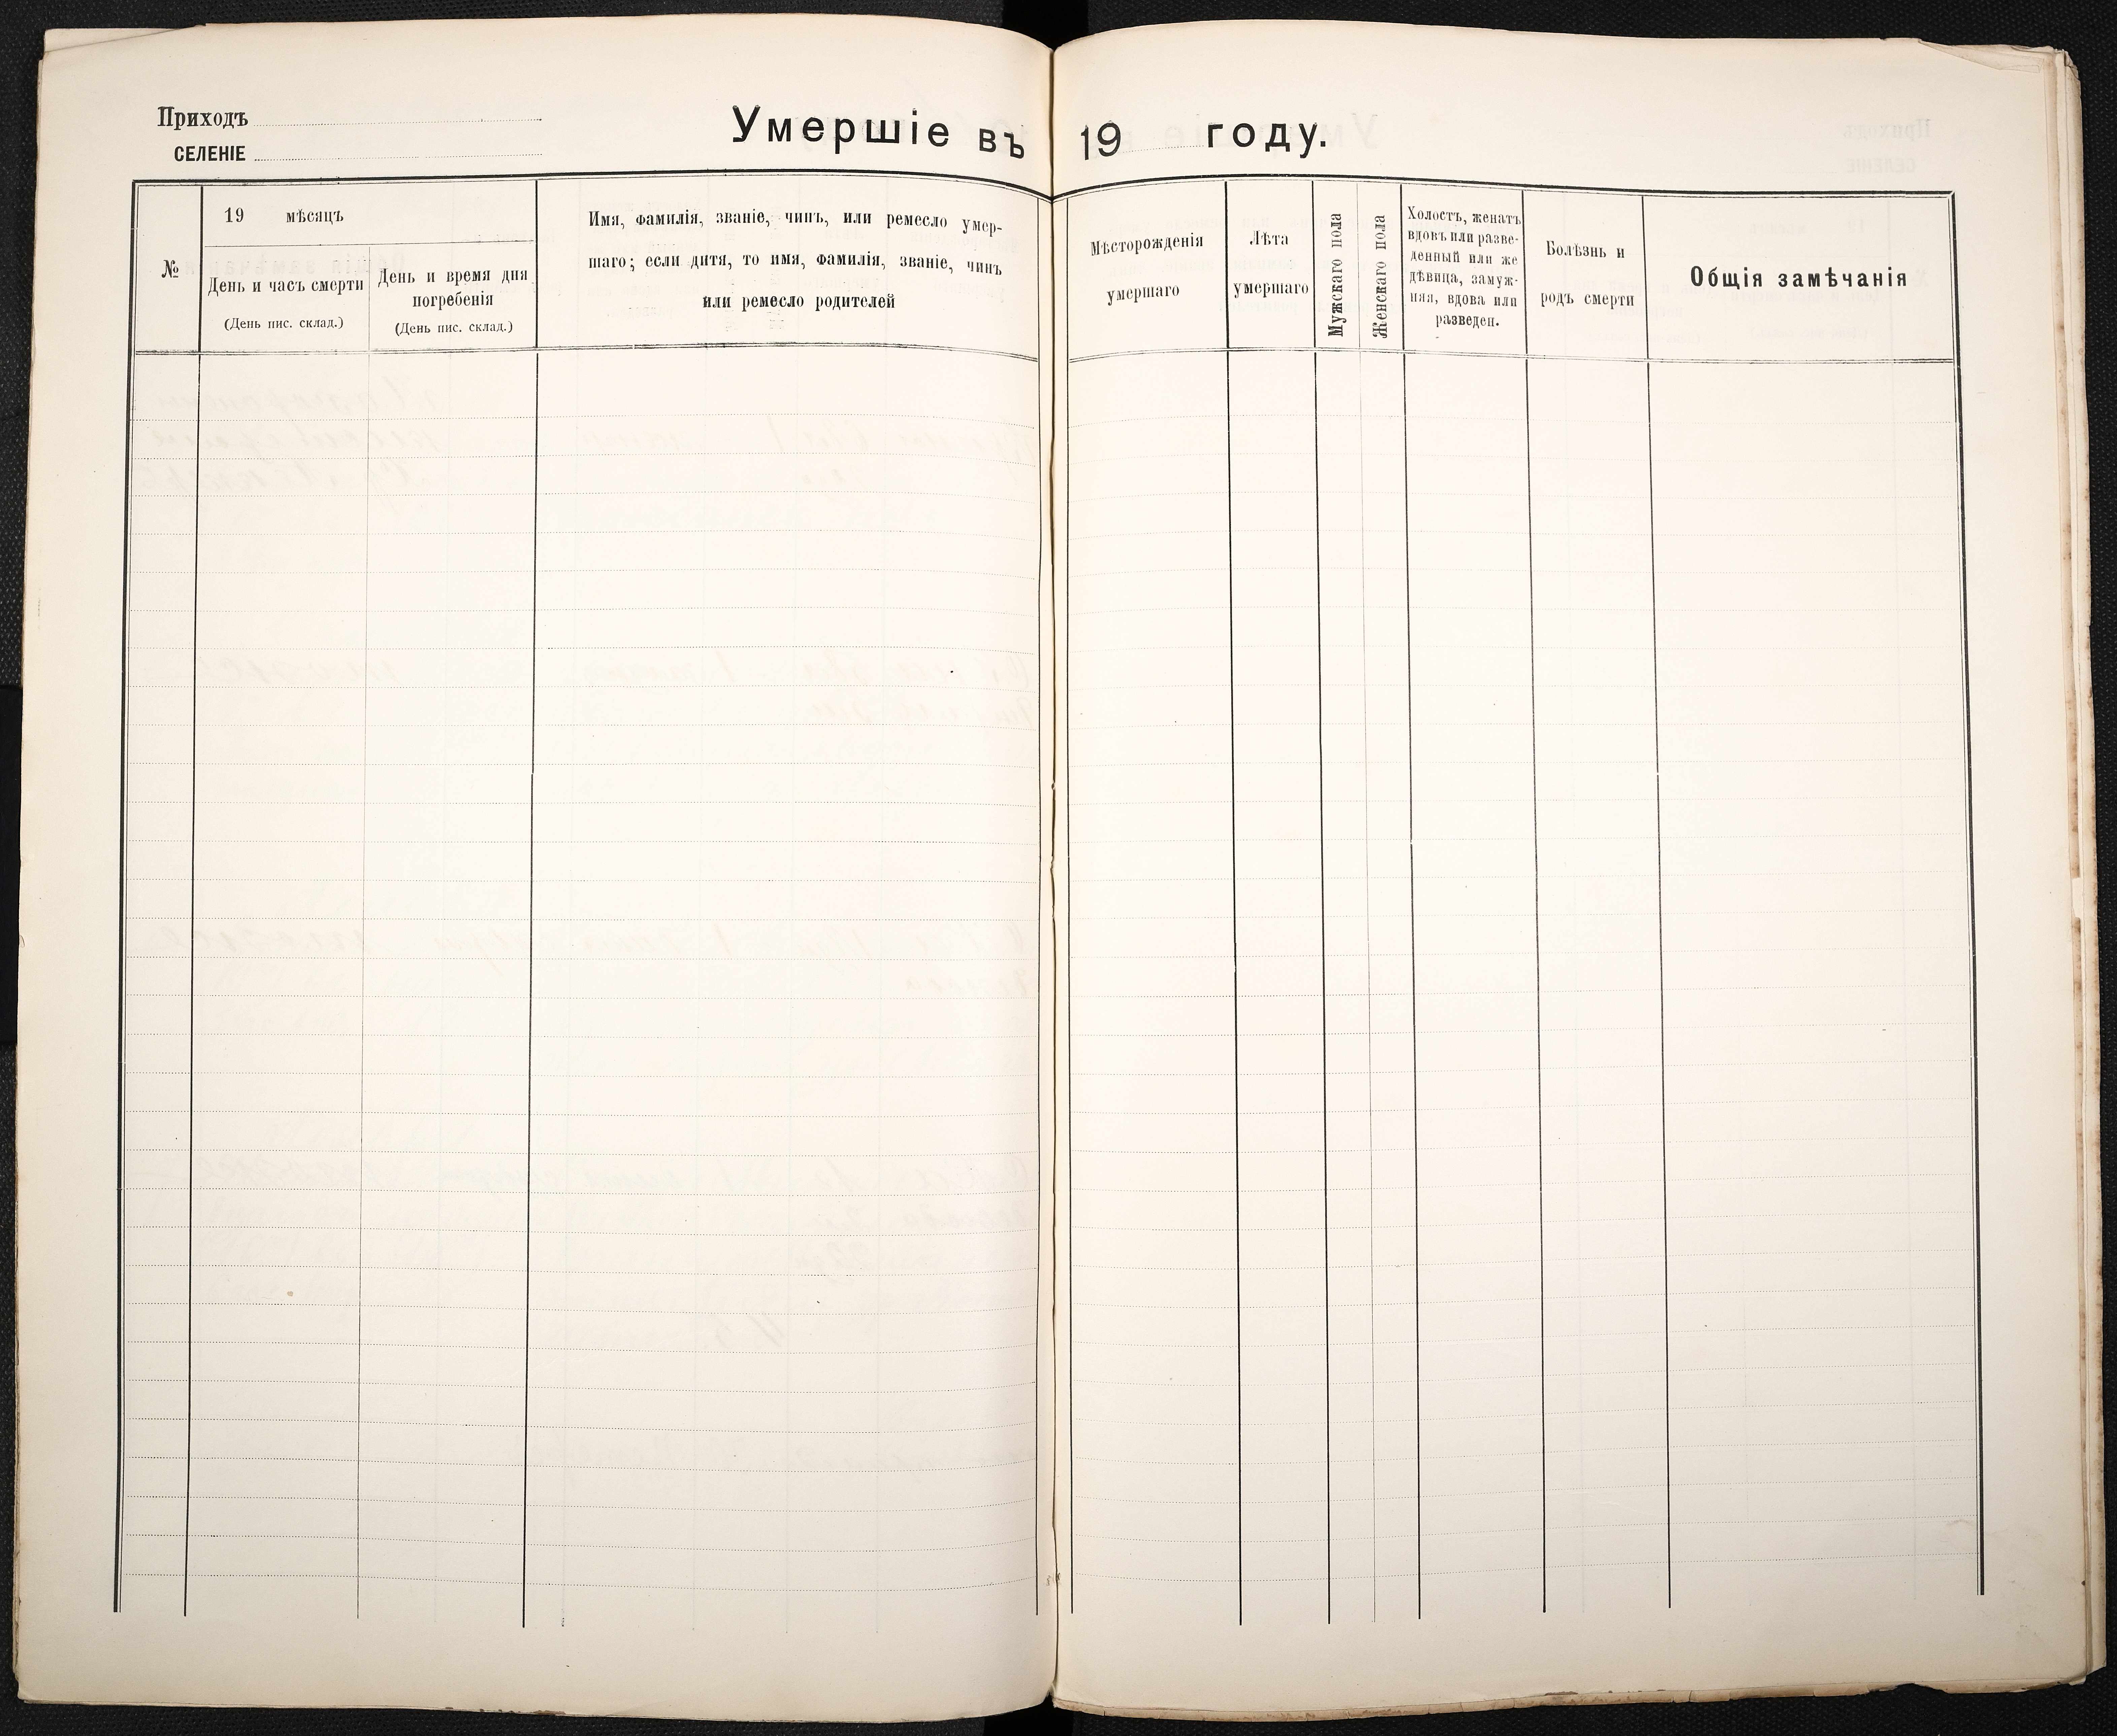 Приходъ
СЕЛЕНІЕ
Умершіе въ 19 году.
№
19 мѣсяцъ
День и часъ смерти
(День пис. склад.)
День и время дня
погребенія
(День пис. склад.)
Имя, фамилія, званіе, чинъ, или ремесло умер-
шаго; если дитя, то имя, фамилія, званіе, чинъ
или ремесло родителей
Мѣсторожденія
умершаго
Лѣта
умершаго
Мужскаго пола
Женскаго пола
Холостъ, женатъ
вдовъ или разве-
денный или же
дѣвица, замуж-
няя, вдова или
разведен.
Болѣзнь и
родъ смерти
Общія замѣчанія